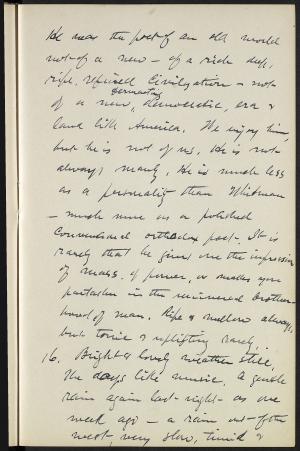 He was the poet of an old world
not of a new - of a rich deep,
ripe, refined civilization - not
of a new, democratic, era &
germinating
land like America. We enjoy him,
but he is not of us. He is not
always manly. He is much less
as a personality than Whitman
- much more as a polished
conventional orthodox poet. It is
rarely that he gives one the impression
of mass, of power, or makes you
partaker in the universal brother-
hood of man. Ripe & mellow always,
but tonic & uplifting rarely.
16. Bright & lovely weather still,
the days like music. A gentle
rain again last night - as one
week ago - a rain out of the
west, very slow, timid &